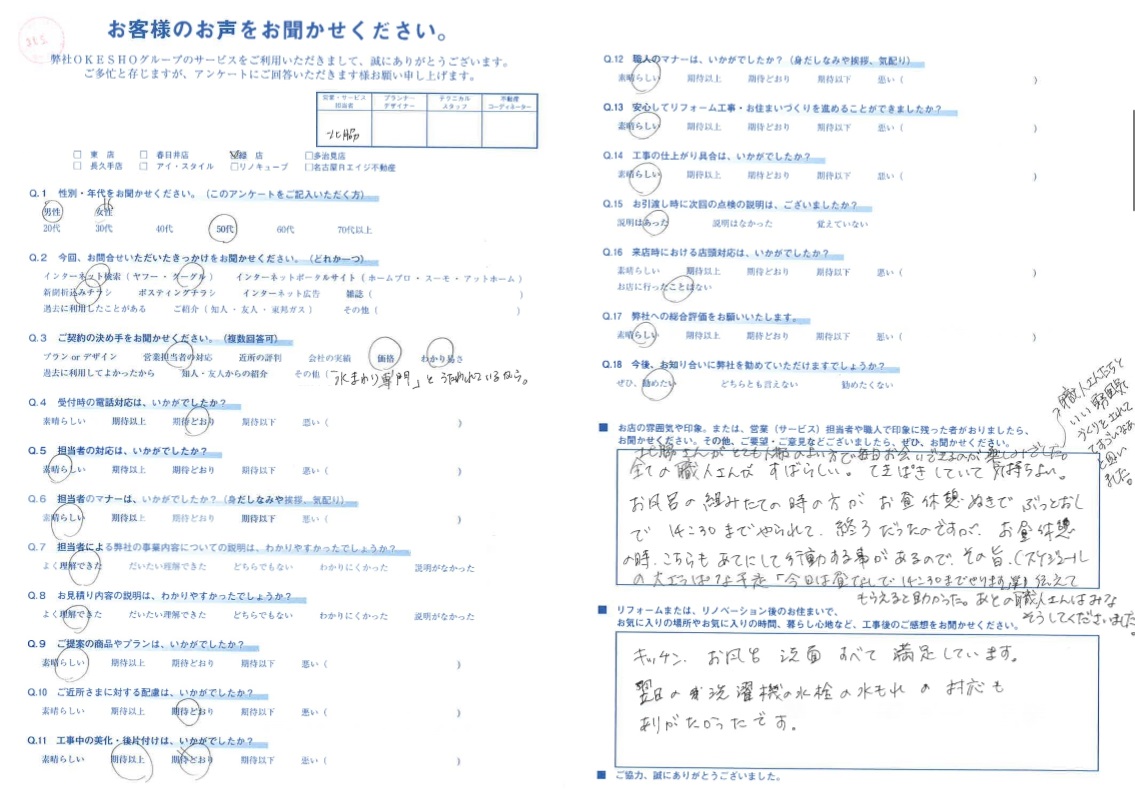 お客様のお声をお聞かせください。
弊社OKESHOグループのサービスをご利用いただきまして、誠にありがとうございます。
ご多忙と存じますが、アンケートにご回答いただきます様お願い申し上げます。
営業・サービス担当者 プランナーデザイナー テクニカルスタッフ 不動産コーディネーター
北脇
□ 東 店 □ 春日井店 ☑緑 店 □多治見店
□ 長久手店 □ アイ・スタイル □リノキューブ □名古屋Rエイジ不動産
Q.1 性別・年代をお聞かせください。(このアンケートをご記入いただく方)
男性 女性
20代 30代 40代 50代 60代 70代以上
Q.2 今回、お問合せいただいたきっかけをお聞かせください。(どれか一つ)
インターネット検索(ヤフー・グーグル) インターネットポータルサイト(ホームプロ・スーモ・アットホーム)
新聞折込みチラシ ポスティングチラシ インターネット広告 雑誌( )
過去に利用したことがある ご紹介(知人・友人・東邦ガス) その他( )
Q.3 ご契約の決め手をお聞かせください。(複数回答可)
プラン or デザイン 営業担当者の対応 近所の評判 会社の実績 価格 わかり易さ
過去に利用してよかったから 知人・友人からの紹介 その他(「水まわり専門」とうたわれているから。
Q.4 受付時の電話対応は、いかがでしたか?
素晴らしい 期待以上 期待どおり 期待以下 悪い( )
Q.5 担当者の対応は、いかがでしたか?
素晴らしい 期待以上 期待どおり 期待以下 悪い( )
Q.6 担当者のマナーは、いかがでしたか?(身だしなみや挨拶、気配り)
素晴らしい 期待以上 期待どおり 期待以下 悪い( )
Q.7 担当者による弊社の事業内容についての説明は、わかりやすかったでしょうか?
よく理解できた だいたい理解できた どちらでもない わかりにくかった 説明がなかった
Q.8 お見積り内容の説明は、わかりやすかったでしょうか?
よく理解できた だいたい理解できた どちらでもない わかりにくかった 説明がなかった
Q.9 ご提案の商品やプランは、いかがでしたか?
素晴らしい 期待以上 期待どおり 期待以下 悪い( )
Q.10 ご近所さまに対する配慮は、いかがでしたか?
素晴らしい 期待以上 期待どおり 期待以下 悪い( )
Q.11 工事中の美化・後片付けは、いかがでしたか?
素晴らしい 期待以上 期待どおり 期待以下 悪い( )
Q.12 職人のマナーは、いかがでしたか?(身だしなみや挨拶、気配り)
素晴らしい 期待以上 期待どおり 期待以下 悪い( )
Q.13 安心してリフォーム工事・お住まいづくりを進めることができましたか?
素晴らしい 期待以上 期待どおり 期待以下 悪い( )
Q.14 工事の仕上がり具合は、いかがでしたか?
素晴らしい 期待以上 期待どおり 期待以下 悪い( )
Q.15 お引渡し時に次回の点検の説明は、ございましたか?
説明はあった 説明はなかった 覚えていない
Q.16 来店時における店頭対応は、いかがでしたか?
素晴らしい 期待以上 期待どおり 期待以下 悪い( )
お店に行ったことはない
Q.17 弊社への総合評価をお願いいたします。
素晴らしい 期待以上 期待どおり 期待以下 悪い( )
Q.18 今後、お知り合いに弊社を勧めていただけますでしょうか?
ぜひ、勧めたい どちらとも言えない 勧めたくない
■ お店の雰囲気や印象。または、営業(サービス)担当者や職人で印象に残った者がおりましたら、
お聞かせください。その他、ご要望・ご意見などございましたら、ぜひ、お聞かせください。
北脇さんがとても人柄のよい方で毎日お会いできるのが楽しみでした。
職人さんたちと
いい雰囲気
づくりをされて
てすごいなあ
と思い
ました。
全ての職人さんがすばらしい。てきぱきしていて気持ちよい。
お風呂の組みたての時の方がお昼休憩ぬきでぶっとおし
で 14:30までやられて、終了だったのですが、お昼休憩
の時、こちらもあてにして行動する事があるので、その旨、(スケジュール
「今日は昼なしで14:30までやります」等)伝えて
もらえると助かった。あとの職人さんはみな
そうしてくださいました。
■ リフォームまたは、リノベーション後のお住まいで、
お気に入りの場所やお気に入りの時間、暮らし心地など、工事後のご感想をお聞かせください。
キッチン、お風呂 洗面 すべて 満足しています。
翌日の洗濯機の水栓の水もれの対応も
ありがたかったです。
■ ご協力、誠にありがとうございました。